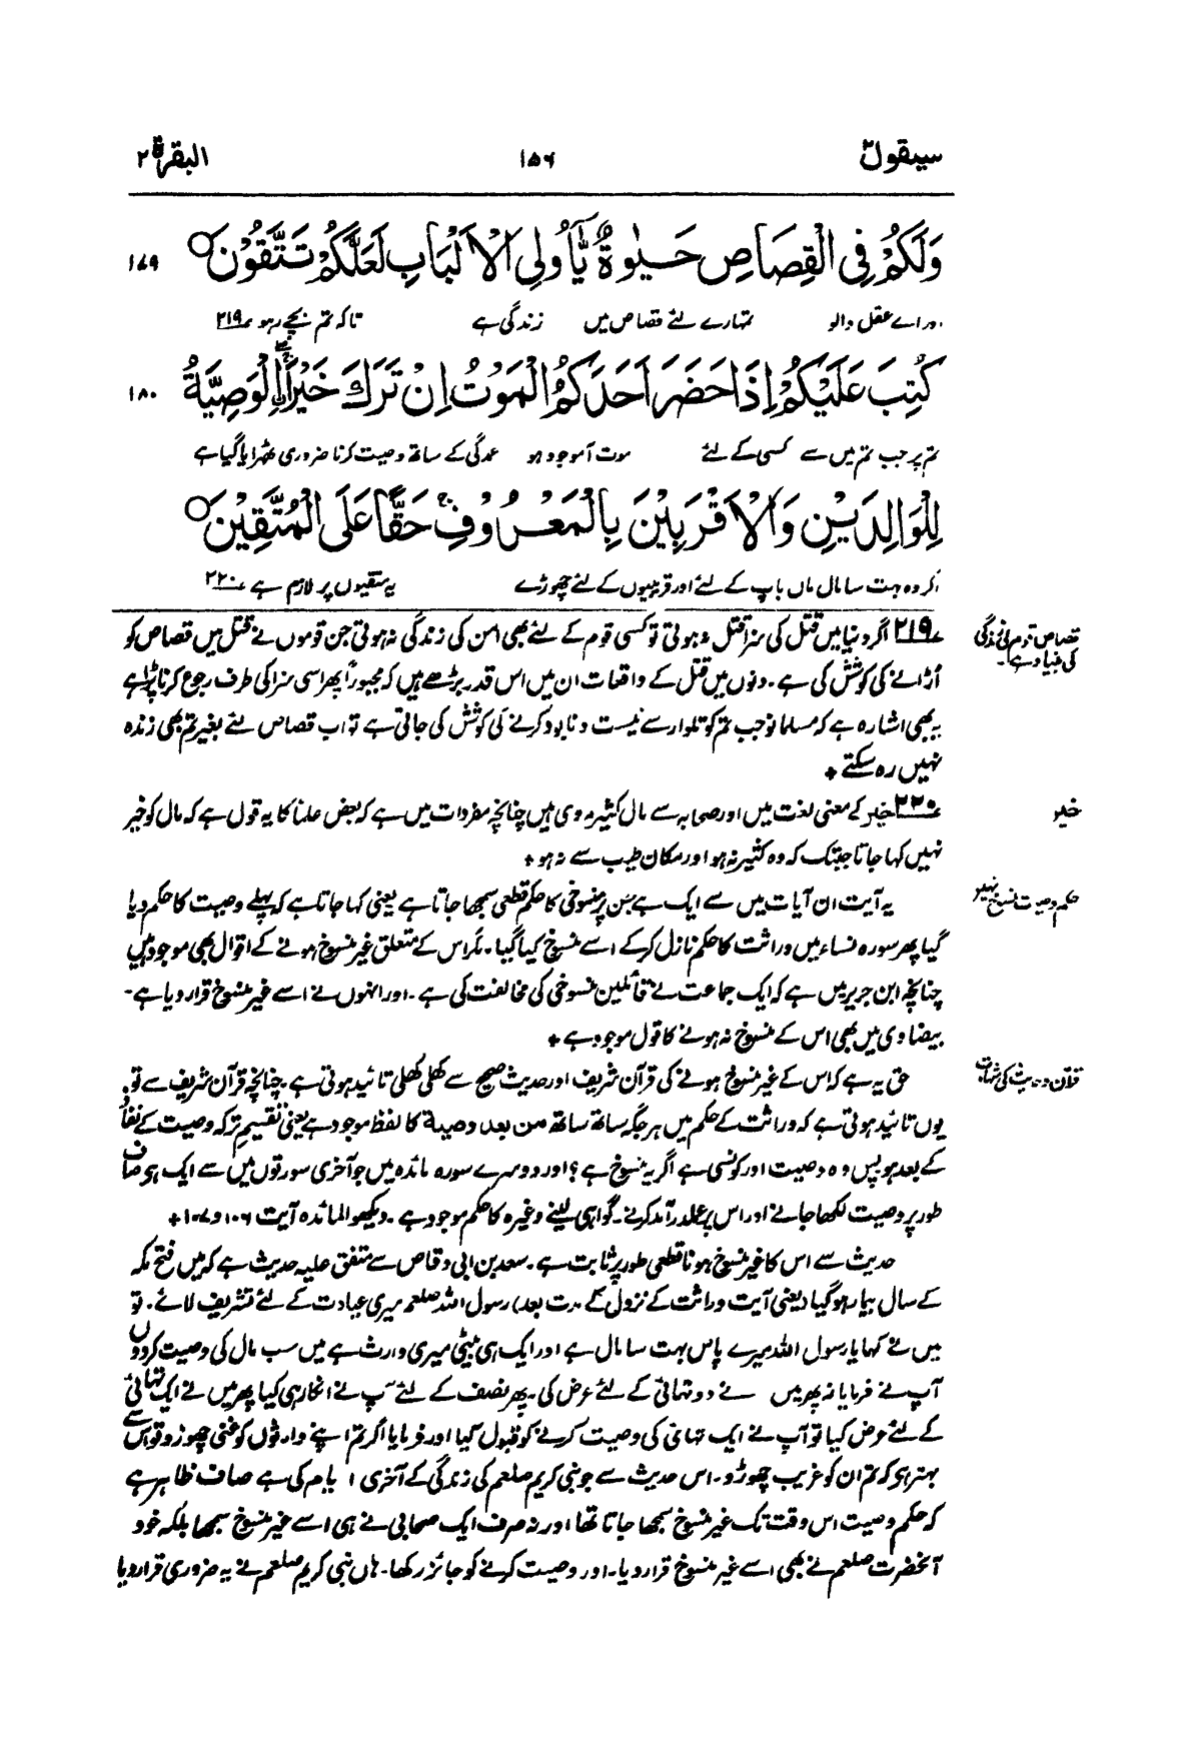 سیقول ۲ ۱۵۶ البقرة ۲
وَلَكُمْ فِي الْقِصَاصِ حَيٰوةٌ يّٰٓاُولِي الْاَلْبَابِ لَعَلَّكُمْ تَتَّقُوْنَ ○ ۱۷۹
اور اے عقل والو تمہارے لئے قصاص میں زندگی ہے تاکہ تم بچے رہو ۲۱۹
كُتِبَ عَلَيْكُمْ اِذَا حَضَرَ اَحَدَكُمُ الْمَوْتُ اِنْ تَرَكَ خَيْرًا ۖۚ الْوَصِيَّةُ ۱۸۰
تم پر جب تم میں سے کسی کے لئے موت آموجود ہو عمدگی کے ساتھ وصیت کرنا ضروری ٹھہرایا گیا ہے
لِلْوَالِدَيْنِ وَالْاَقْرَبِيْنَ بِالْمَعْرُوْفِ ۚ حَقًّا عَلَى الْمُتَّقِيْنَ ○
اگر وہ بہت سا مال ماں باپ کے لئے اور قریبیوں کے لئے چھوڑے یہ متقیوں پر لازم ہے ۲۲۰
قصاص قومی زندگی
کی بنیاد ہے۔
۲۱۹ اگر دنیا میں قتل کی سزا قتل نہ ہوتی تو کسی قوم کے لئے بھی امن کی زندگی نہ ہوتی جن قوموں نے قتل میں قصاص کو
اُڑانے کی کوشش کی ہے۔ دنوں میں قتل کے واقعات ان میں اس قدر بڑھے ہیں کہ مجبوراً پھر اسی سزا کی طرف رجوع کرنا پڑا ہے
یہ بھی اشارہ ہے کہ مسلمانو جب تم کو تلوار سے نیست و نابود کرنے کی کوشش کی جاتی ہے تو اب قصاص لئے بغیر تم بھی زندہ
نہیں رہ سکتے +
خیر
۲۲۰ خیر کے معنی لغت میں اور صحابہ سے مال کثیر مروی ہیں چنانچہ مفردات میں ہے کہ بعض علما کا یہ قول ہے کہ مال کو خیر
نہیں کہا جاتا جبتک کہ وہ کثیر نہ ہو اور مکان طیب سے نہ ہو +
حکم وصیت منسوخ نہیں
یہ آیت ان آیات میں سے ایک ہے جن پر منسوخی کا حکم قطعی سمجھا جاتا ہے یعنی کہا جاتا ہے کہ پہلے وصیت کا حکم دیا
گیا پھر سورہ نساء میں وراثت کا حکم نازل کر کے اسے منسوخ کیا گیا۔ مگر اس کے متعلق غیر منسوخ ہونے کے اقوال بھی موجود ہیں
چنانچہ ابن جریر میں ہے کہ ایک جماعت نے قائلین منسوخی کی مخالفت کی ہے۔ اور انہوں نے اسے غیر منسوخ قرار دیا ہے۔
بیضاوی میں بھی اس کے منسوخ نہ ہونے کا قول موجود ہے +
قرآن و حدیث کی شہادت
حق یہ ہے کہ اس کے غیر منسوخ ہونے کی قرآن شریف اور حدیث صحیح سے کھلی کھلی تائید ہوتی ہے۔ چنانچہ قرآن شریف سے تو
یوں تائید ہوتی ہے کہ وراثت کے حکم میں ہر جگہ ساتھ ساتھ من بعد وصیۃ کا لفظ موجود ہے یعنی تقسیم ترکہ وصیت کے نفاذ
کے بعد ہو پس وہ وصیت اور کونسی ہے اگر یہ منسوخ ہے؟ اور دوسرے سورہ مائدہ میں جو آخری سورتوں میں سے ایک ہے صاف
طور پر وصیت لکھا جانے اور اس پر عملدرآمد کرنے۔ گواہی لینے وغیرہ کا حکم موجود ہے۔ دیکھو المائدہ آیت ۱۰۶ و ۱۰۷ +
حدیث سے اس کا غیر منسوخ ہونا قطعی طور پر ثابت ہے۔ سعد بن ابی وقاص سے متفق علیہ حدیث ہے کہ میں فتح مکہ
کے سال بیمار ہو گیا (یعنی آیت وراثت کے نزول کے مدت بعد) رسول اللہ صلعم میری عیادت کے لئے تشریف لائے۔ تو
میں نے کہا یا رسول اللہ میرے پاس بہت سا مال ہے اور ایک ہی بیٹی میری وارث ہے میں سب مال کی وصیت کردوں
آپ نے فرمایا نہ پھر میں نے دو تہائی کے لئے عرض کی۔ پھر نصف کے لئے آپ نے انکار ہی کیا پھر میں نے ایک تہائی
کے لئے عرض کیا تو آپ نے ایک تہائی کی وصیت کرنے کو قبول کیا اور فرمایا اگر تم اپنے وارثوں کو غنی چھوڑو تو اس سے
بہتر ہو کہ تم ان کو غریب چھوڑو۔ اس حدیث سے جو نبی کریم صلعم کی زندگی کے آخری ایام کی ہے صاف ظاہر ہے
کہ حکم وصیت اس وقت تک غیر منسوخ سمجھا جاتا تھا اور نہ صرف ایک صحابی نے ہی اسے غیر منسوخ سمجھا بلکہ خود
آنحضرت صلعم نے بھی اسے غیر منسوخ قرار دیا۔ اور وصیت کرنے کو جائز رکھا۔ ہاں نبی کریم صلعم نے یہ ضروری قرار دیا